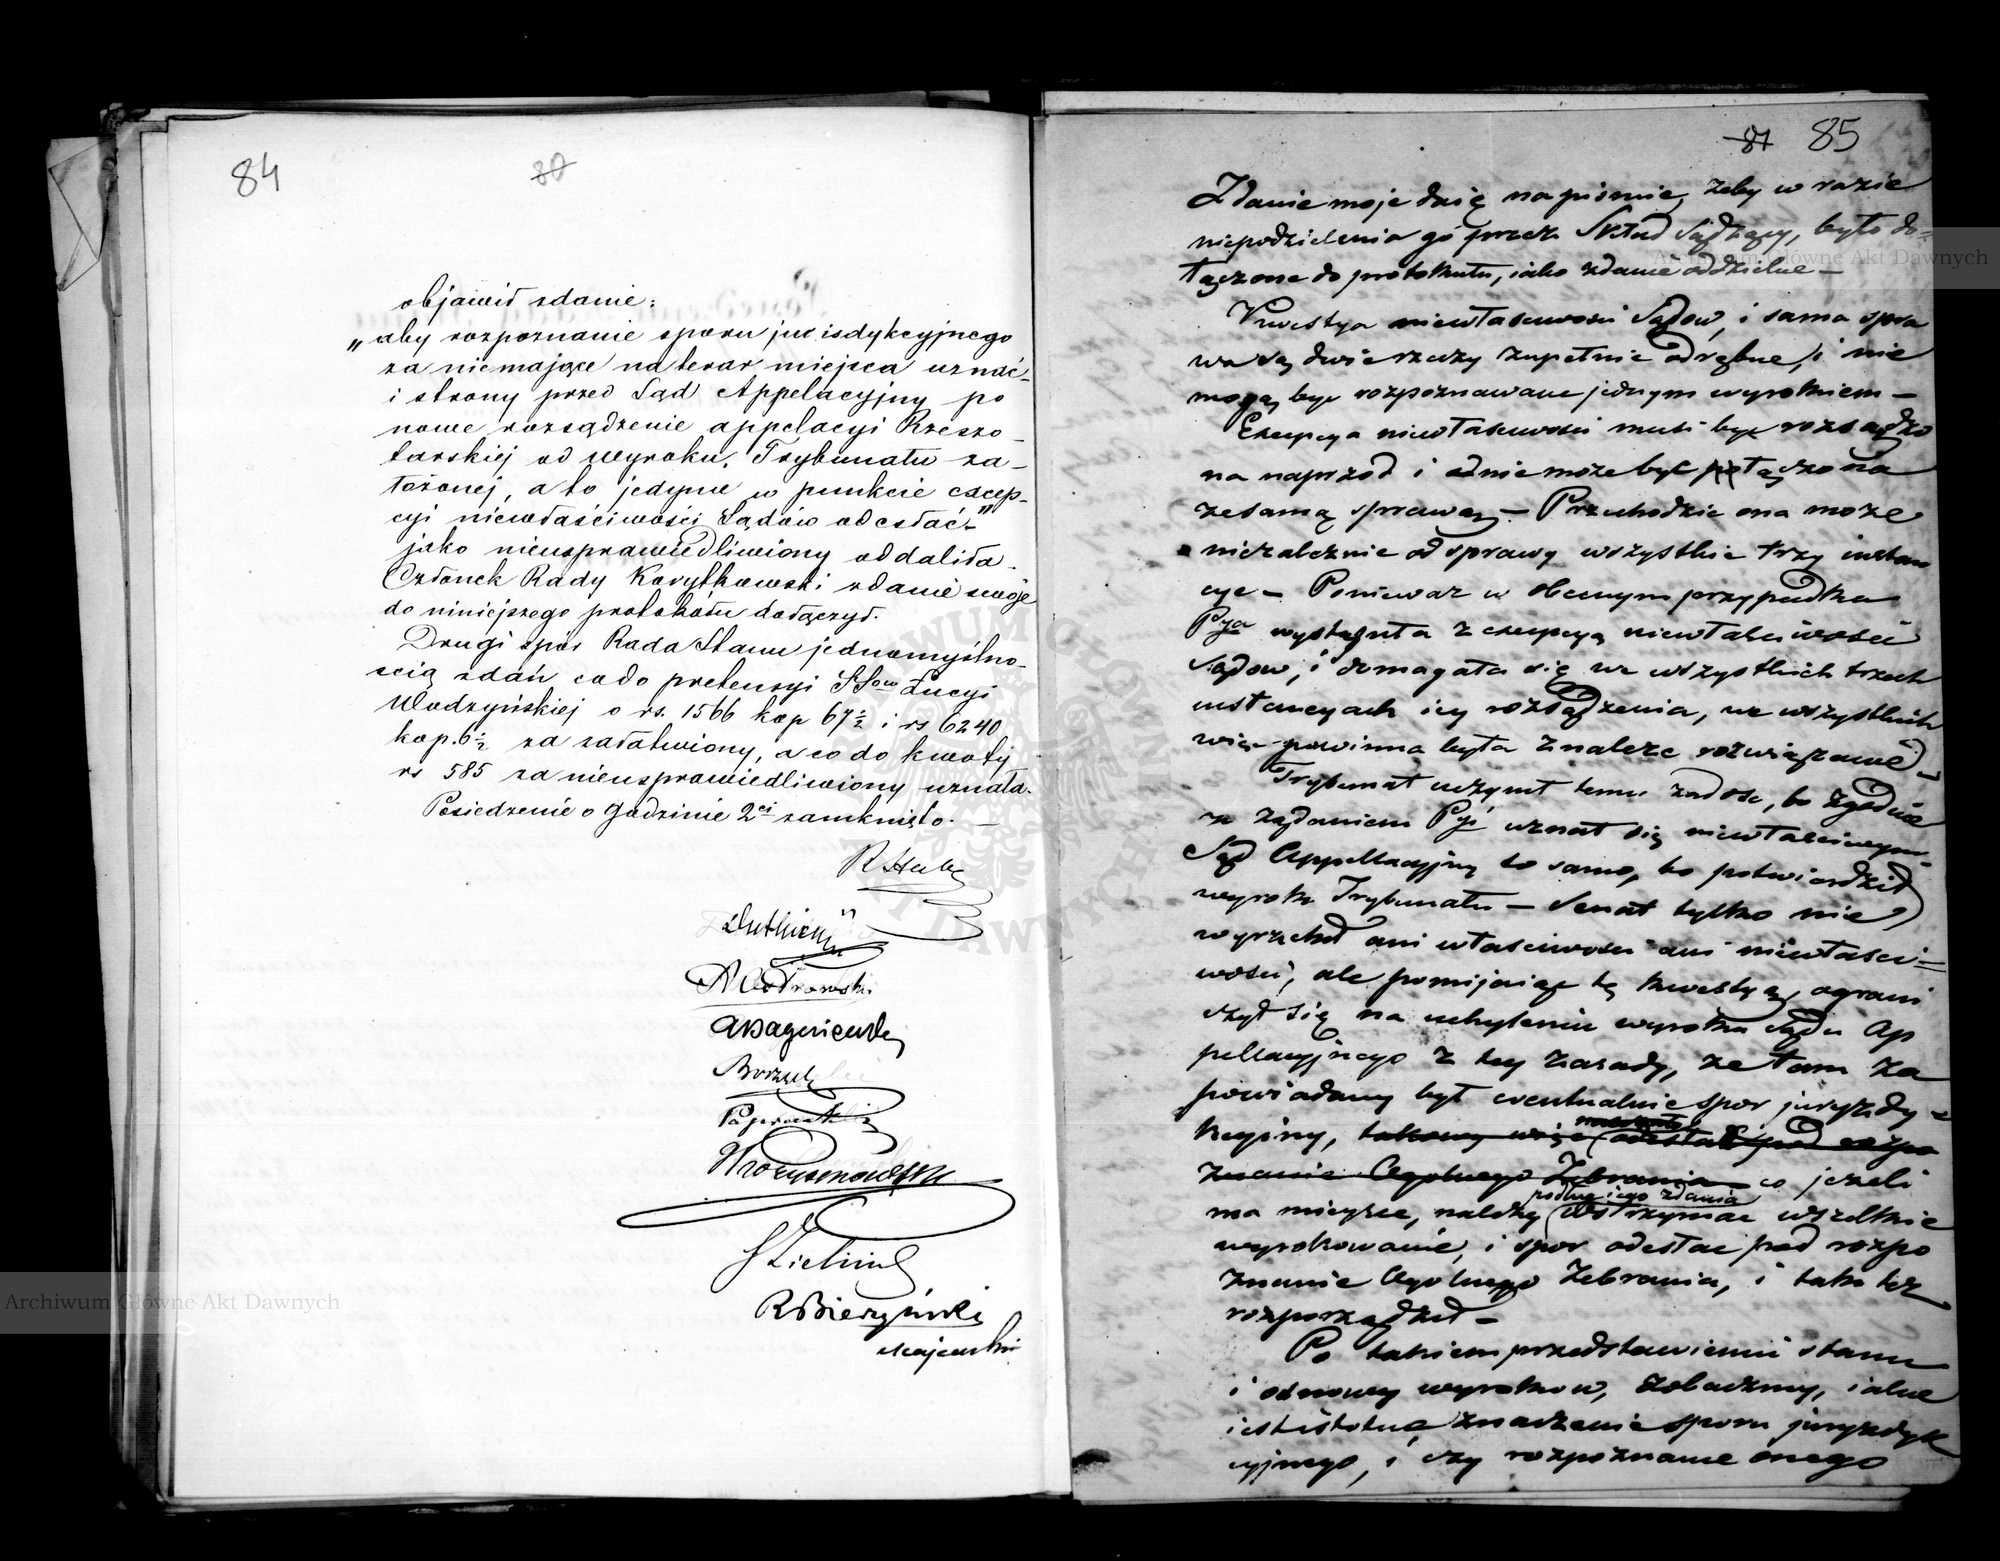 84 80
objawił zdanie:
„aby rozpoznanie sporu jurisdykcyjnego
za niemające na teraz miejsca uznać
i strony przed Sąd Appelacyjny po
nowe rozsądzenie appelacyi Rzeszo-
tarskiej od wyroku Trybunału za-
łożonej, a to jedynie w punkcie excep-
cyi niewłaściwości Sądów odesłać"
jako nieusprawiedliwiony oddaliła.
Członek Rady Korytkowski zdanie swoje
do niniejszego protokółu dołączył.
Drugi spór Rada Stanu jednomyślno-
ścią zdań co do pretensyi SSów Łucyi
Wodzyńskiej o rs. 1566 kop 67½ i rs 6240
kop. 6½ za załatwiony, a co do kwoty
rs 585 za nieusprawiedliwiony uznała.
Posiedzenie o godzinie 2ei zamknięto. —
R Hube
A Ostrowski
Wozygnowski
S Zieliński
R Wierzyński
Majewski
81 85
Zdanie moje daię na pismie, żeby w razie
niepodzielenia go przez Skład Sądzący, było do-
łączone do protokułu, iako zdanie oddzielne —
Kwestya niewłasciwosci Sądow, i sama spra
wa są dwie rzeczy zupełnie odrębne, i nie
mogą byc rozpoznawane jednym wyrokiem —
Excepcya niewłasciwosci musi byc rozsądzo
na naprzod i nie może być połączona
ze samą sprawą — Przechodzic ona może
niezależnie od sprawy wszystkie trzy instan
cye — Ponieważ w obecnym przypadku
Pya wystąpiła z excepcyą niewłasciwości
Sądow, i domagała się we wszystkich trzech
instancyach iey rozsądzenia, we wszystkich
więc powinna była znalezc rozwiązanie —
Trybunał uczynił temu zadosc, bo zgodnie
z żądaniem Pyi uznał się niewłasciwym —
Sąd Appellacyjny to samo, bo potwierdził
wyrok Trybunału — Senat tylko nie
wyrzekł ani własciwosci ani niewłasci-
wosci, ale pomijaiąc tę kwestyą, ograni
czył się na uchyleniu wyroku Sądu Ap
pellacyjnego z tey zasady, że tam za
powiadany był eventualnie spor juryzdy-
kcyiny, takowy więc odesłał pod rozpo
znanie Ogolnego Zebrania co jeżeli
podług iego zdania
ma mieysce, należy wstrzymac wszelkie
wyrokowanie, i spor odesłac pod rozpo
znanie Ogolnego Zebrania, i tak też
rozporządził —
Po takiem przedstawieniu stanu
i osnowy wyrokow, zobaczmy, iakie
iest istotne znaczenie sporu juryzdyk
cyjnego, i czy rozpoznanie onego
Archiwum Główne Akt Dawnych
Archiwum Główne Akt Dawnych
ARCHIWUM GŁÓWNE AKT DAWNYCH